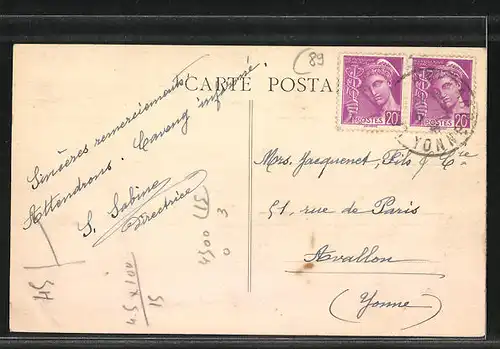 89
CARTE POSTA
POSTES 20
POSTES 20
YONNE
Sincères remerciements.
Attendrons.
S. Sabine
Directrice
Mrs. Jacquenet, Fils & Cie
51, rue de Paris
Avallon
(Yonne)
45
45 x 100
15
4500 15
0 3
0